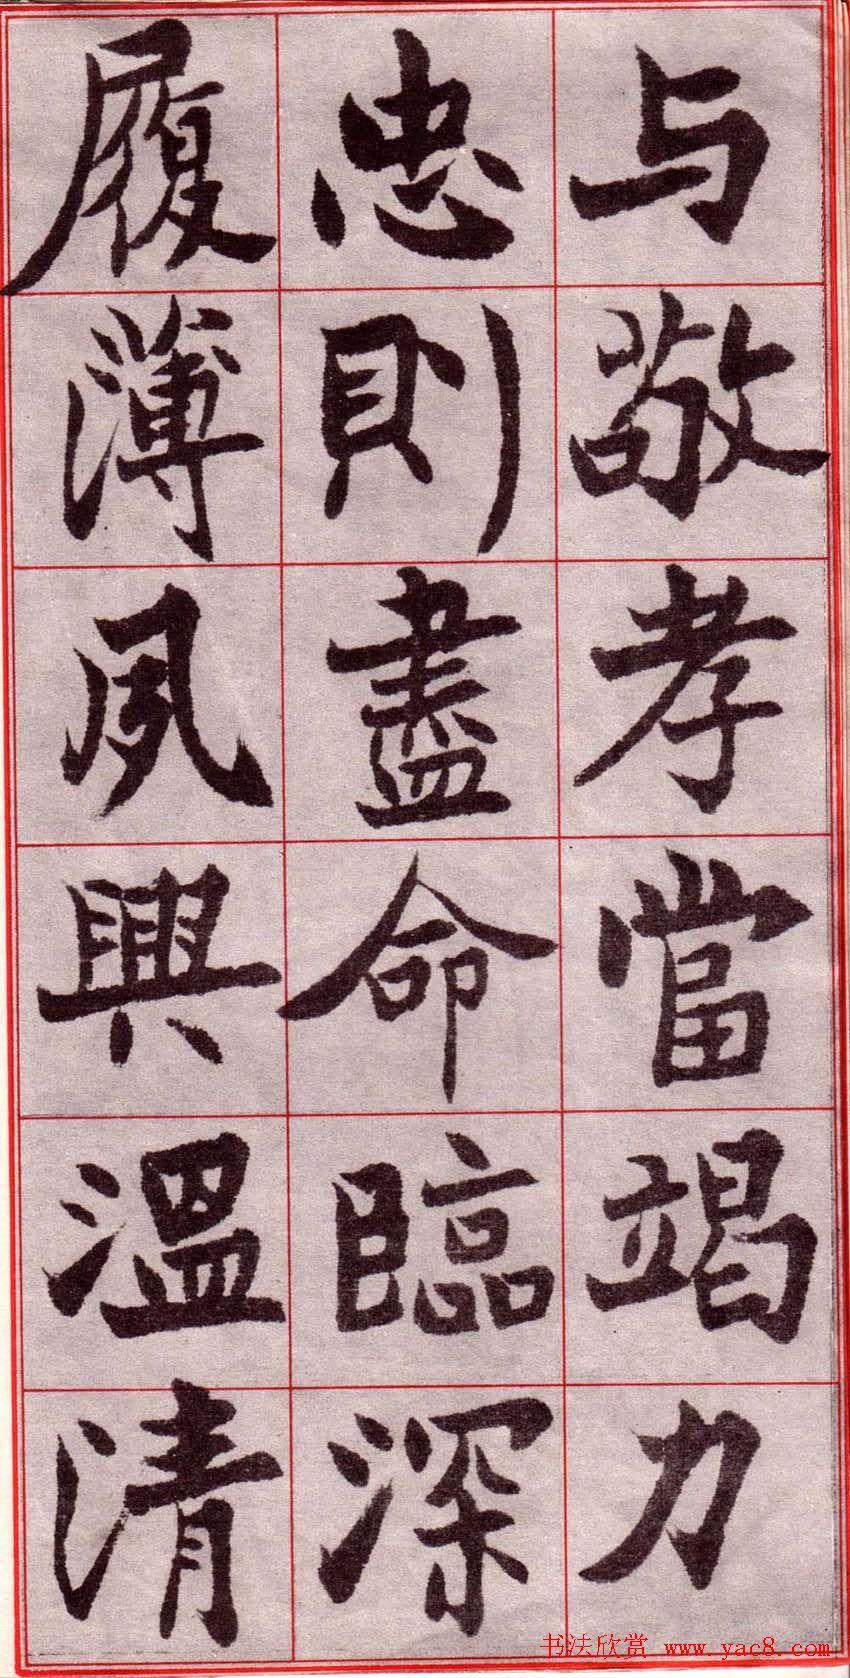 与敬孝當竭力
忠則盡命臨深
履薄夙興溫清
书法欣赏 www.yac8.com